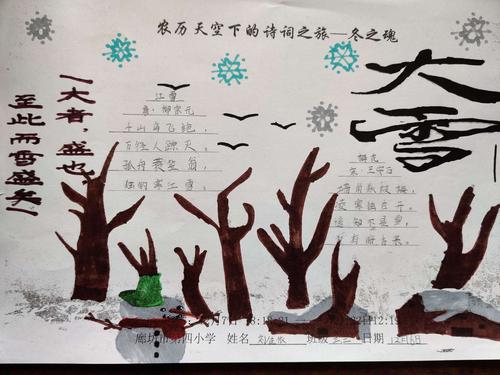 农历天空下的诗词之旅—冬之魂
大雪
一大者，盛也，
至此而雪盛矣！
江雪
唐·柳宗元
千山鸟飞绝，
万径人踪灭。
孤舟蓑笠翁，
独钓寒江雪。
梅花
宋 王安石
墙角数枝梅，
凌寒独自开。
遥知不是雪，
廊坊市第四小学 姓名 班级 日期 12月6日